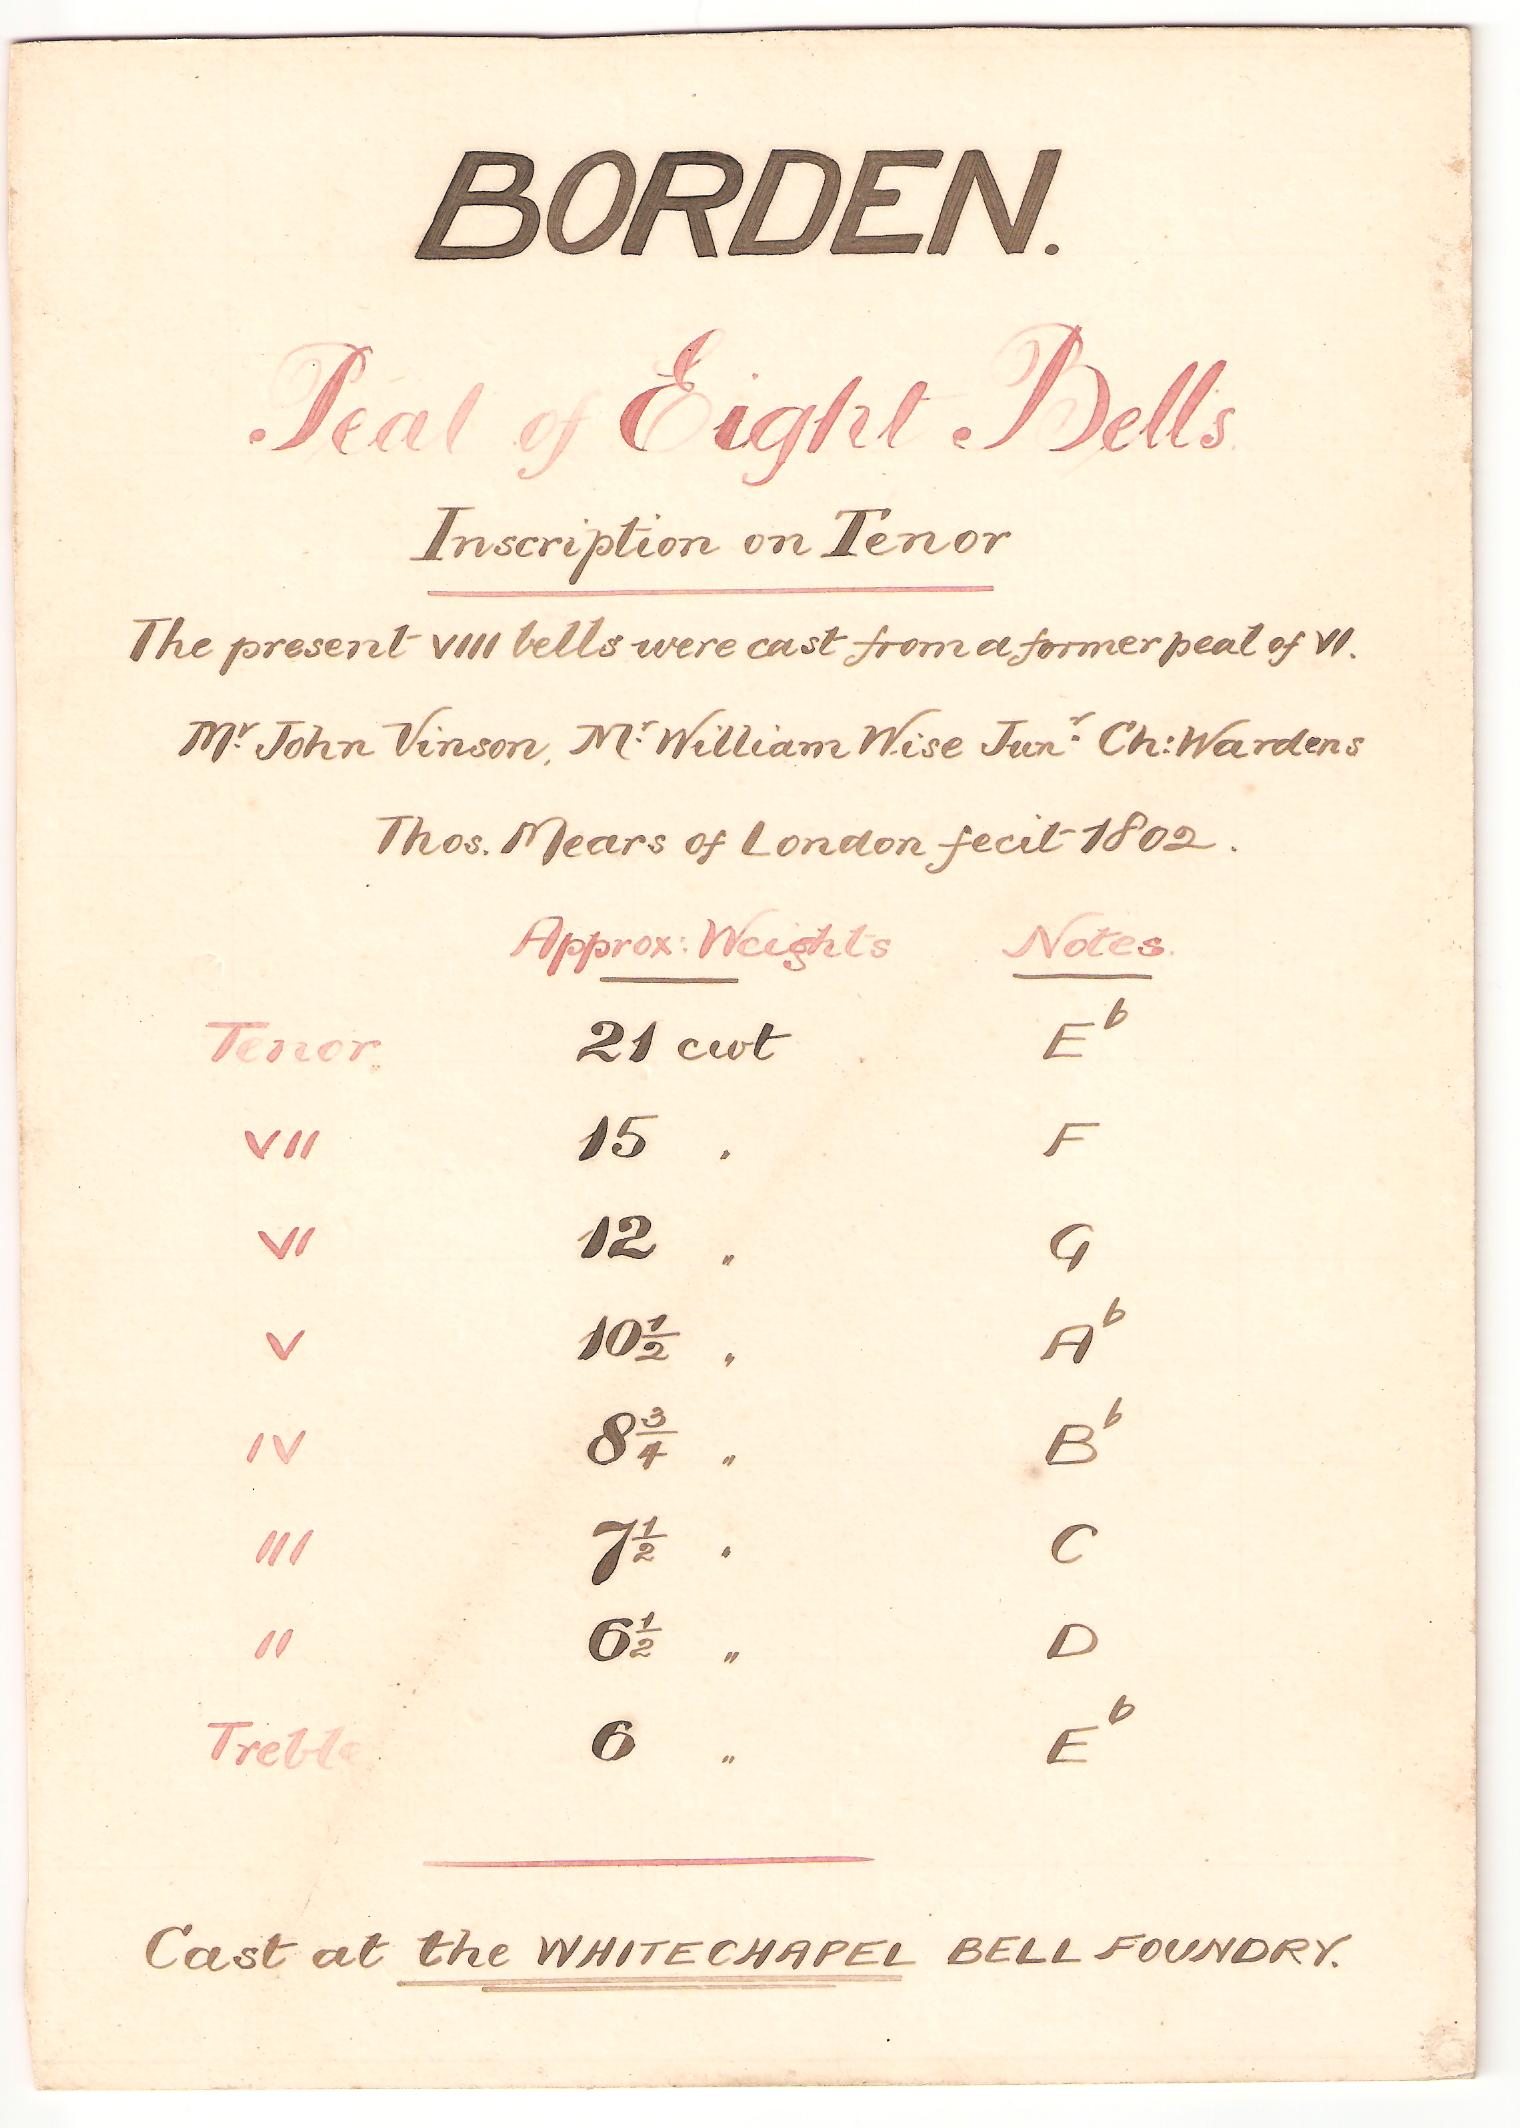 BORDEN.
Peal of Eight Bells
Inscription on Tenor
The present VIII bells were cast from a former peal of VI.
Mr. John Vinson, Mr. William Wise Junr. Ch: Wardens
Thos. Mears of London fecit 1802.
Approx: Weights Notes.
Tenor. 21 cwt E♭
VII 15 " F
VI 12 " G
V 10½ " A♭
IV 8¾ " B♭
III 7½ " C
II 6½ " D
Treble 6 " E♭
Cast at the WHITECHAPEL BELL FOUNDRY.